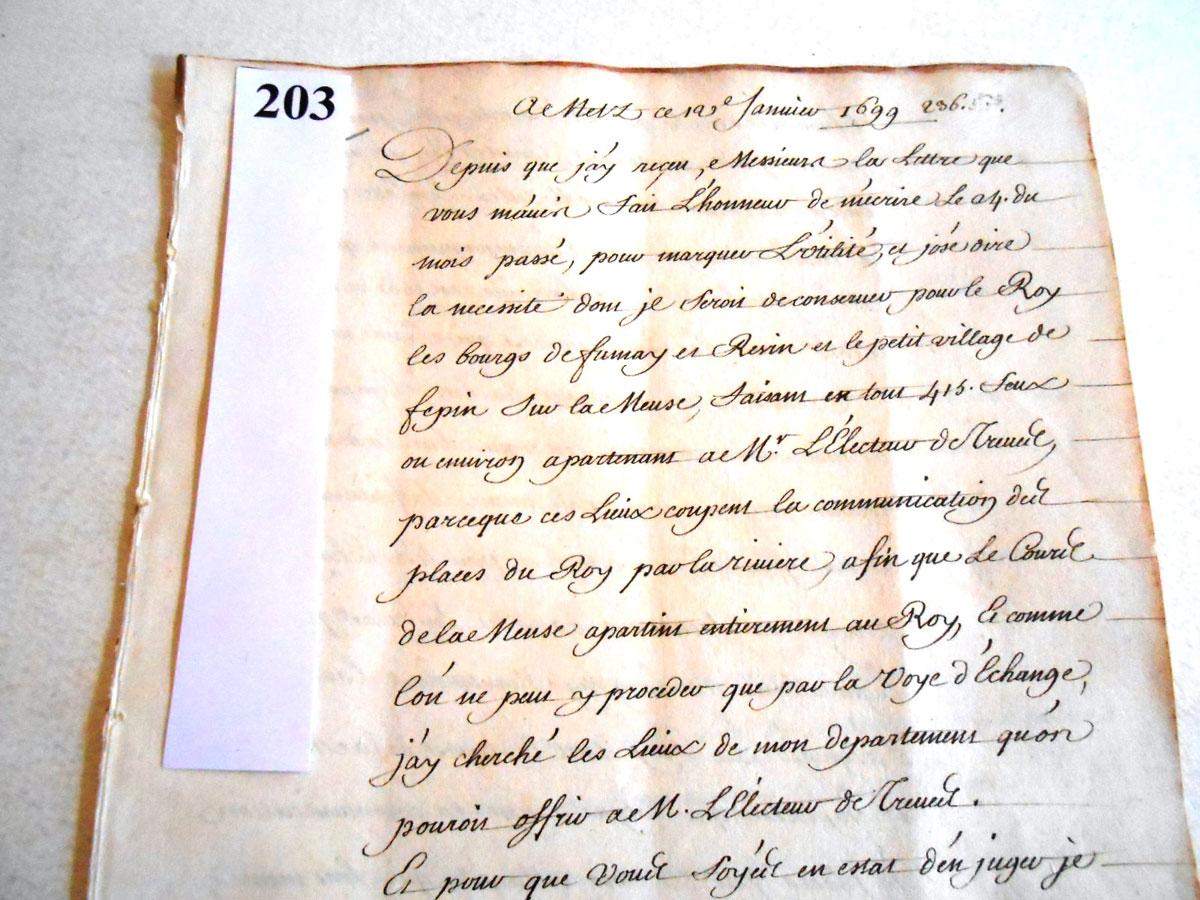 203
A Metz ce 12e Janvier 1699 236.
Depuis que j'ay reçeu, Messieurs la Lettre que
vous m'avés fait L'honneur de m'ecrire Le 24. du
mois passé, pour marquer L'ötilité, et j'osé dire
la necessité dont je seroit de conserver pour le Roy
les bourgs de fumay et Revin et le petit village de
fepin sur la Meuse, faisant en tout 415. feux
ou environ apartenant a Mr. L'Électeur de Treves,
parceque ces Lieux coupent la communication des
places du Roy par la riviere, afin que Le Cours
de la Meuse apartint entierement au Roy, Et comme
l'on ne peut y proceder que par la Voye d'Échange,
j'ay cherché les Lieux de mon departement qu'on
pouroit offrir a M. L'Électeur de Treves.
Et pour que Vous soyés en estat d'en juger je